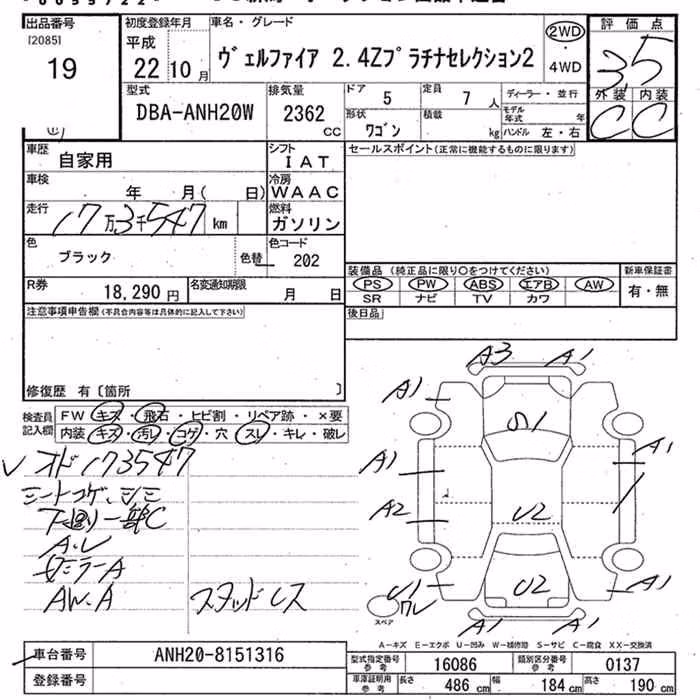 出品番号
[2085]
19
初度登録年月
平成
22 10 月
車名・グレード
ヴェルファイア 2.4Zプラチナセレクション2
2WD
・
4WD
評価点
3.5
外装 内装
C C
型式
DBA-ANH20W
排気量
2362
CC
ドア 5
定員 7 人
形状 ワゴン
積載 kg
ディーラー・並行
モデル年式 年
ハンドル 左・右
車歴
自家用
シフト
IAT
車検
年 月( 日)
冷房
WAAC
走行
17万3千547 km
燃料
ガソリン
色
ブラック
色替
色コード
202
R券
18,290 円
名変通知期限
月 日
セールスポイント(正常に機能するものに限ります)
装備品 (純正品に限り○をつけてください)
PS PW ABS エアB AW
SR ナビ TV カワ
新車保証書
有・無
後日品
注意事項申告欄(不具合内容等は具体的に記入して下さい)
修復歴 有〔箇所 〕
検査員記入欄
FW キズ・飛石・ヒビ割・リペア跡・×要
内装 キズ・汚レ・コゲ・穴・スレ・キレ・破レ
オド173547
シートコゲ、シミ
下廻り一部C
AW.A
スタッドレス
A3 A1
A1
S1
A1
A1
A2
U2
U1
U2
A1
A1 A1
スペア
A-キズ E-エクボ U-凹み W-補修跡 S-サビ C-腐食 XX-交換済
車台番号
ANH20-8151316
登録番号
型式指定番号
参考
16086
類別区分番号
参考
0137
車庫証明用
参考
長さ 486 cm
幅 184 cm
高さ 190 cm